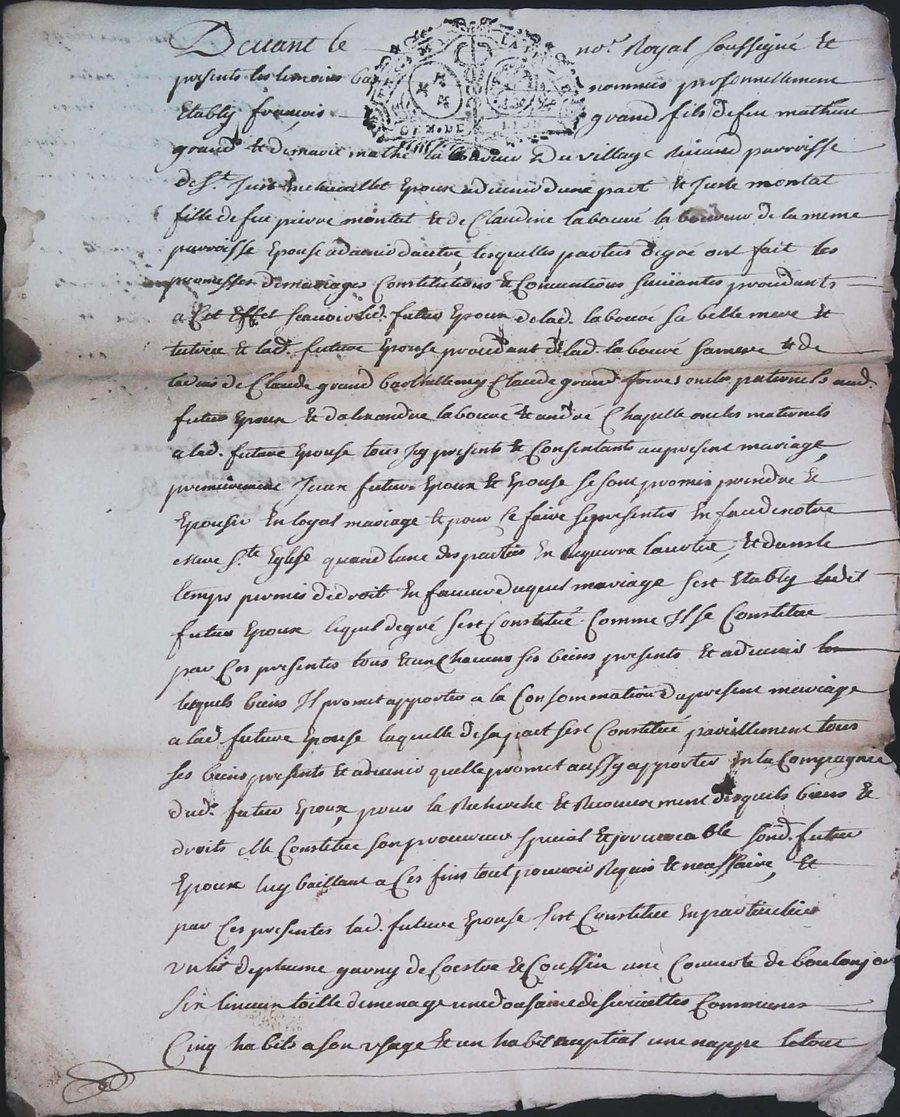 Devant le no.re Royal soussigné et
presents les temoins bas nommés personnellement
Etably francois grand fils de feu mathieu
grand et de marie mathé laboureur du village parroisse
de S.t Just en chevallet Epoux advenir d'une part et Juste montat
fille de feu pierre montat et de Claudine labouré laboureur de la meme
parroisse Epouse advenir d'autre, lesquelles parties de gré ont fait les
promesses de mariages Constitutions et Conventions suivantes procedants
a Cet Effet scavoir led. futur Epoux de lad. labouré sa belle mere et
tutrice et lad. future Epouse procedant de lad. labouré sa mere et de
ladvis de Claude grand barthellemy Claude grand oncles paternels aud.
futur Epoux et d'alexandre labouré et andré Chapelle oncles maternels
a lad. future Epouse tous Icy presents et Consentants au present mariage,
premierement Iceux futurs Epoux et Epouse se sont promis prendre et
Epouser En loyal mariage et pour ce faire se presenter En face de notre
mere S.te Eglise quand lune des parties En requerra lautre, et dans le
temps permis de droit En faveur duquel mariage sest Etably ledit
futur Epoux lequel de gré sest Constitué Comme Il se Constitue
par Ces presentes tous et un Chacuns ses biens presents et advenir
lesquels biens Il promet apporter a la Consommation du present mariage
a lad. future Epouse laquelle de sa part sest Constitué pareillement tous
ses biens presents et advenir quelle promet aussy apporter En la Compagnie
dud. futur Epoux, pour la Recherche et Recouvrement desquels biens et
droits Elle Constitue son procureur special et irrevocable sond. futur
Epoux luy baillant a Ces fins tout pouvoir Requis et necessaire, Et
par Ces presentes lad. future Epouse sest Constitué En particulier
un lit de plume garny de Coestre et Coussin une Couverte de
six linceux toille de menage une dousaine de serviettes Communes
Cinq habits a son usage et un habit nuptial une nappe le tout